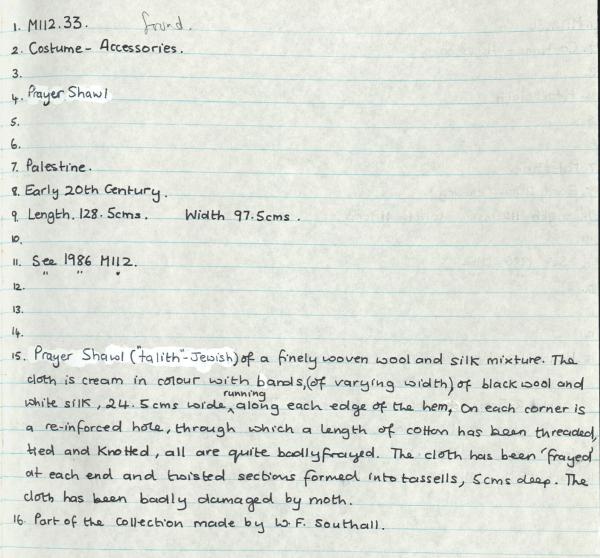 1. M112.33. found.
2. Costume - Accessories.
3.
4. Prayer Shawl
5.
6.
7. Palestine.
8. Early 20th Century.
9. Length. 128.5cms. Width 97.5cms.
10.
11. See 1986 M112.
" " "
12.
13.
14.
15. Prayer Shawl ("talith"-Jewish) of a finely woven wool and silk mixture. The
cloth is cream in colour with bands, (of varying width) of black wool and
white silk, 24.5cms wide, running along each edge of the hem, On each corner is
a re-inforced hole, through which a length of cotton has been threaded,
tied and knotted, all are quite badly frayed. The cloth has been 'frayed'
at each end and twisted sections formed into tassells, 5cms deep. The
cloth has been badly damaged by moth.
16. Part of the collection made by W.F. Southall.